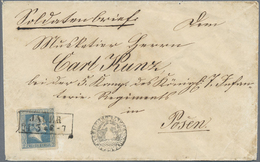 Soldatenbrief
Dem
Muskatier Herrn
Carl Kunz
bei der 3. Komp des Königl 7 Infan-
terie-Regiment
in
Posen